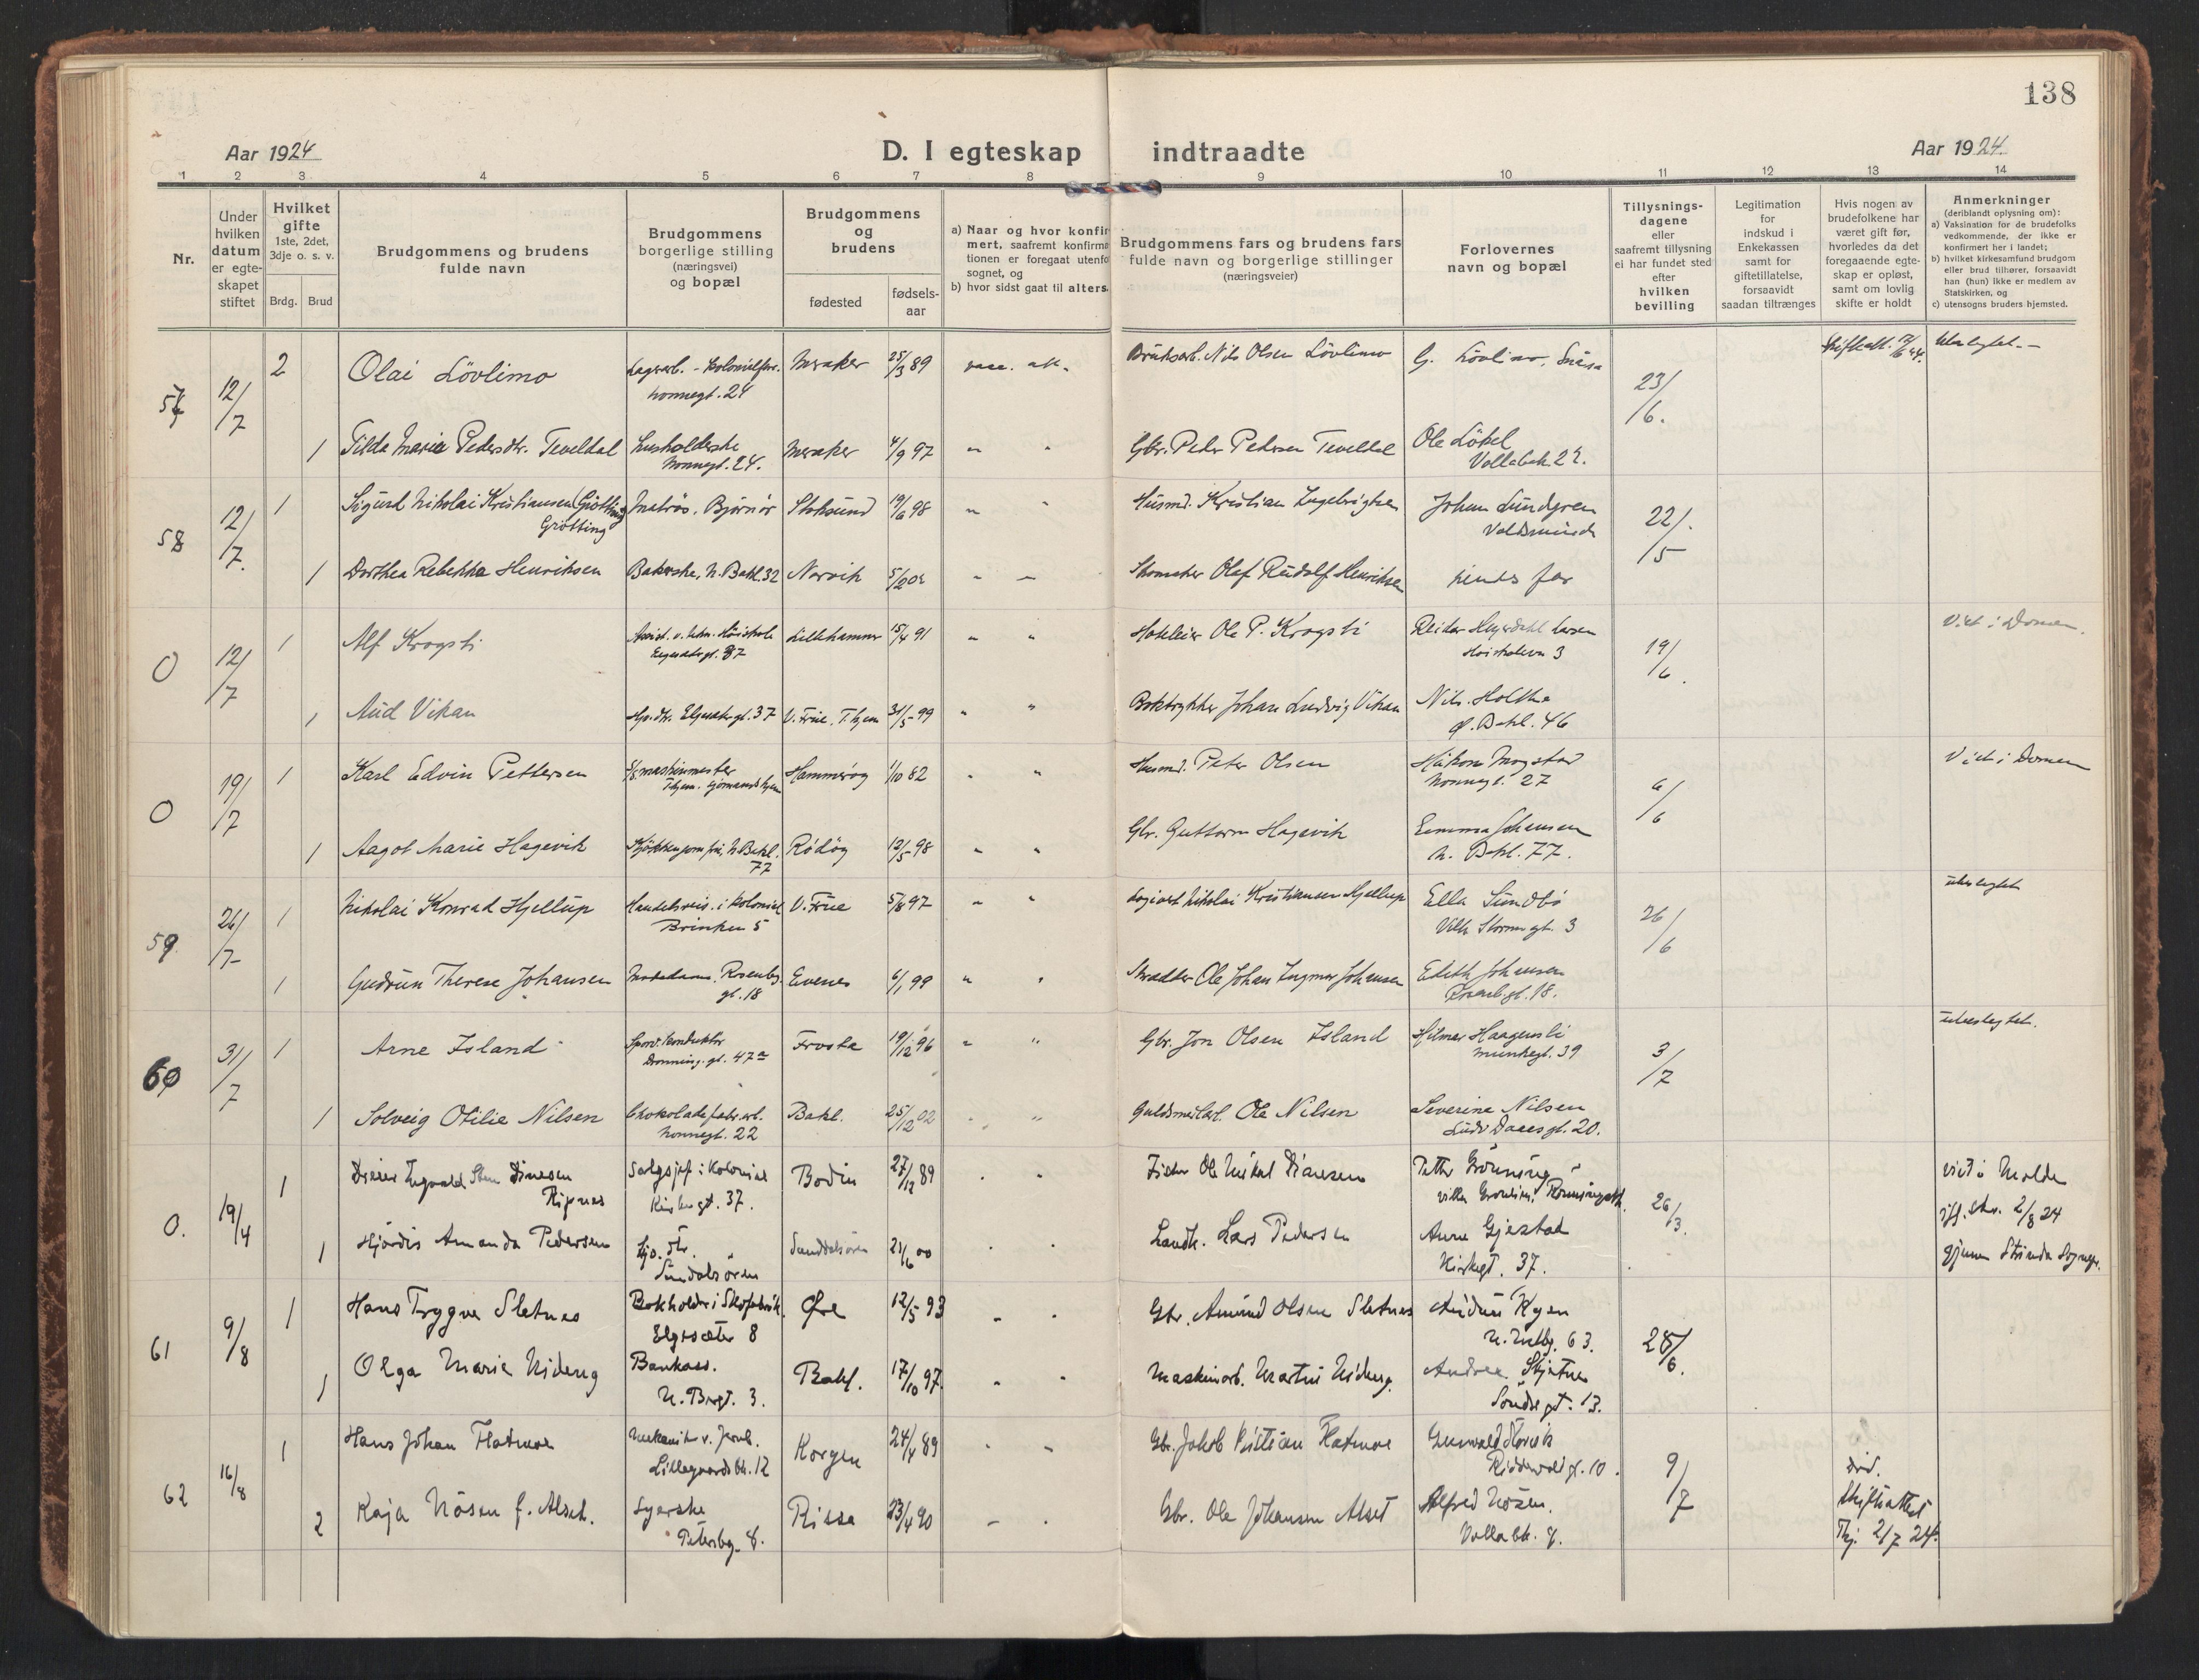 138
Aar 1924
D. I egteskap indtraadte
Aar 1924
1 2 3 4 5 6 7 8 9 10 11 12 13 14
Nr.
Under hvilken datum er egte-skapet stiftet
Hvilket gifte
1ste, 2det, 3dje o. s. v.
Brdg. Brud
Brudgommens og brudens fulde navn
Brudgommens borgerlige stilling (næringsvei) og bopæl
Brudgommens og brudens
fødested
fødsels-aar
a) Naar og hvor konfir
mert, saafremt konfirma
tionen er foregaat utenfo
sognet, og
b) hvor sidst gaat til alters.
Brudgommens fars og brudens fars
fulde navn og borgerlige stillinger
(næringsveier)
Forlovernes
navn og bopæl
Tillysnings-
dagene
eller
saafremt tillysning
ei har fundet sted
efter
hvilken
bevilling
Legitimation
for
indskud i
Enkekassen
samt for
giftetillatelse,
forsaavidt
saadan tiltrænges
Hvis nogen av
brudefolkene har
været gift før,
hvorledes da det
foregaaende egte-
skap er opløst,
samt om lovlig
skifte er holdt
Anmerkninger
(deriblandt oplysning om):
a) Vaksination for de brudefolks
vedkommende, der ikke er
konfirmert her i landet;
b) hvilket kirkesamfund brudgom
eller brud tilhører, forsaavidt
han (hun) ikke er medlem av
Statskirken, og
c) utensogns bruders hjemsted.
57 12/7 2 Olai Lövlimo Lagerarb. - Kolonialforr. Nonnegt. 24 Meraker 25/3 89 vacc. Nils Olsen Lövlimo G. Lövlimo, Snåsa 23/6. Ubeslegtet.
1 Tilda Marie Pedersdtr. Teveldal Husholderske Nonnegt. 24. Meraker 4/9 97 " " Gbr. Peder Pedersen Teveldal Ole Vollabak.
58 12/7. 1 Sigurd Nikolai Kristiansen (Grötting) Grötting Matros, Bjørnør Stoksund 19/6 98 " " Husmd. Kristian Ingebrigtsen Johan Lundgren 22/5
1 Dorthea Rebekka Henriksen N. Bakl. 32 Narvik 5/2 02 Skomaker Olaf Rudolf Henriksen hendes far
0 12/7 1 Alf Krogsti Assist. v. tekn. Höiskole Lillehammer 15/4 91 " " Hoteleier Ole P. Krogsti Reidar Heyerdahl Larsen 3 19/6. Viet i Domen.
1 Aud Vikan Hjv. dtr. Elgesetergt. 37 V. Frue, T.hjem 31/5 99 " " Boktrykker Johan Ludvig Vikan Nils Holthe Ø. Bakl. 46
0 19/7 1 Karl Edvin Pettersen maskinmester Hammerøy 1/10 82 " " Husmd. Peter Olsen Håkon Mogstad Nonnegt. 27 6/6 Viet i Domen
1 Aagot Marie Hagevik N. Bakl. 77 Rödöy 12/5 98 " " Gbr. Guttorm Hagevik Emma Johansen N. Bakl. 77.
59. 26/7 1 Nikolai Konrad Hjellup Handelsreis. i kolonial Brinken 5 V. Frue 5/8 97 " " Nikolai Kristiansen Hjellup Ella Sundbö 3 26/6 ubeslegtet
1 Gudrun Therese Johansen Modedame, Rosenbg. gt. 18 Evenes 6/1 99 " " Skrædder Ole Johan Ingmar Johansen Edith Johansen Rosenb.gt. 18.
60 31/7 1 Arne Island Sporv.konduktör Dronning. gt. 47a Frosta 19/12 96 " " Gbr. Jon Olsen Island Hilmar Haagensli Munkegt. 39 3/7 ubeslegtet.
1 Solveig Otilie Nilsen Chokoladefabr.arb. Nonnegt. 22 Bakl. 25/12 02 " " Ole Nilsen Severine Nilsen Ludv. Daaes gt. 20.
0. 19/4 1 Ingvald Dinesen Ripnes Salgsjef i Kolonial Kirkegt. 37. Bodin 27/12 89 " " Fisker Ole Mikal Dinesen Petter Grönning 26/3. viet i Molde
iflg. skr. 2/8 24
gjennem Strinda Sogepr.
1 Hjördis Amanda Pedersen Hjv. dtr. Sundalsören Sunddalsören 21/6 00 " " Landh. Lars Pedersen Anna Gjestad Kirkegt. 37.
61 9/8 1 Hans Trygve Sletnes Bokholder i Skofabrik Elgesæter 8 Øre 12/5 93 " " Gbr. Amund Olsen Sletnes Audun Kyen 63. 28/6.
1 Olga Marie Nideng Bankass. N. 3. Bakl. 17/10 97 " " Maskinarb. Martin Nideng Andrea Skjetne Söndregt. 13.
62 16/8 1 Hans Johan Flatmoe Mekanik. v. Jernb. Lillegaardsbk. 12 Korgen 24/4 89 " " Gbr. Jakob Kristian Flatmoe Riddervoldgt. 10. 9/7
2 Kaja Nösen f. Alseth. Syerske Petersbg. 8. Rissa 23/4 90 " " Gbr. Ole Johansen Alset Alfred Nösen. Vollabk. 8. Skifteattest Thj. 2/7 24.